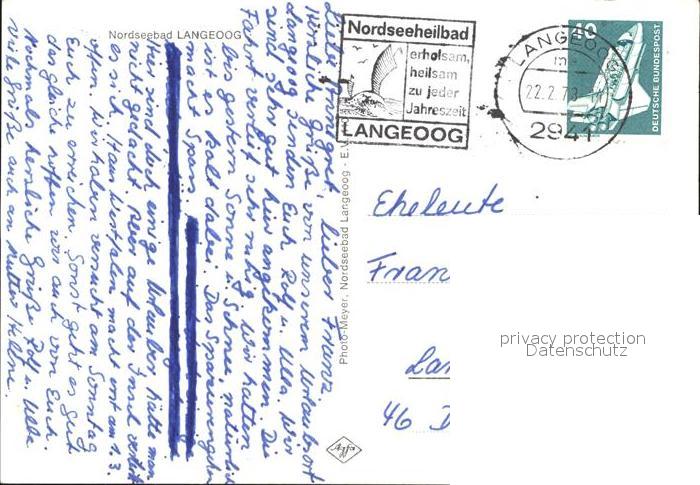 Nordseebad LANGEOOG
Liebe Irmingret, lieber Franz
Herzliche Grüße von unserem Urlaubsort
Langeoog senden Euch Rolf u. Ulla. Wir
sind sehr gut hier angekommen. Die
Fahrt verlief sehr ruhig. Wir hatten
bis gestern Sonne u. Schnee, natürlich
ist es kalt dabei. Das Spazierengehen
macht Spass.
Hier sind doch einige Urlauber hätte man
nicht gedacht. Aber auf der Insel
es. Haus Westfalen macht erst am 1.3.
offen. Wir haben versucht am Sonntag
Euch zu erreichen. Sonst geht es gut
das gleiche hoffen wir auch von Euch.
Nochmals herzliche Grüße Rolf u. Ulla
viele Grüße auch an Mutter Helene.
Photo-Meyer, Nordseebad Langeoog - E.
Agfa
Nordseeheilbad
erholsam,
heilsam
zu jeder
Jahreszeit
LANGEOOG
LANGEOOG
22.2.78
2941
40
DEUTSCHE BUNDESPOST
Eheleute
Fran
Lan
46 D
privacy protection
Datenschutz